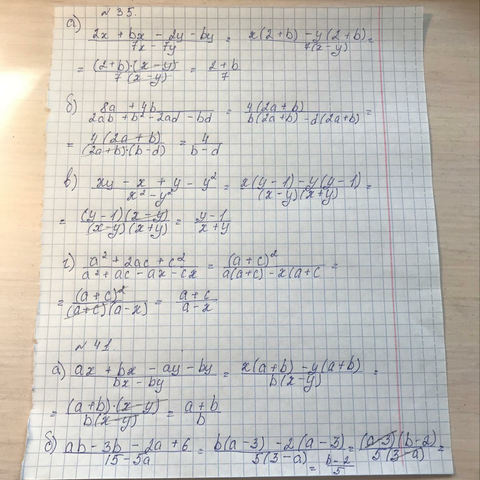 №35.
а) (2x + bx - 2y - by)/(7x - 7y) = (x(2+b) - y(2+b))/(7(x-y)) =
= ((2+b)·(x-y))/(7(x-y)) = (2+b)/7
б) (8a + 4b)/(2ab + b² - 2ad - bd) = (4(2a+b))/(b(2a+b) - d(2a+b)) =
= (4(2a+b))/((2a+b)·(b-d)) = 4/(b-d)
в) (xy - x + y - y²)/(x² - y²) = (x(y-1) - y(y-1))/((x-y)(x+y)) =
= ((y-1)(x-y))/((x-y)(x+y)) = (y-1)/(x+y)
г) (a² + 2ac + c²)/(a² + ac - ax - cx) = (a+c)²/(a(a+c) - x(a+c =
= (a+c)²/((a+c)(a-x)) = (a+c)/(a-x)
№41.
а) (ax + bx - ay - by)/(bx - by) = (x(a+b) - y(a+b))/(b(x-y)) =
= ((a+b)·(x-y))/(b(x-y)) = (a+b)/b
б) (ab - 3b - 2a + 6)/(15 - 5a) = (b(a-3) - 2(a-3))/(5(3-a)) = ((a-3)(b-2))/(5(3-a)) =
= (b-2)/5